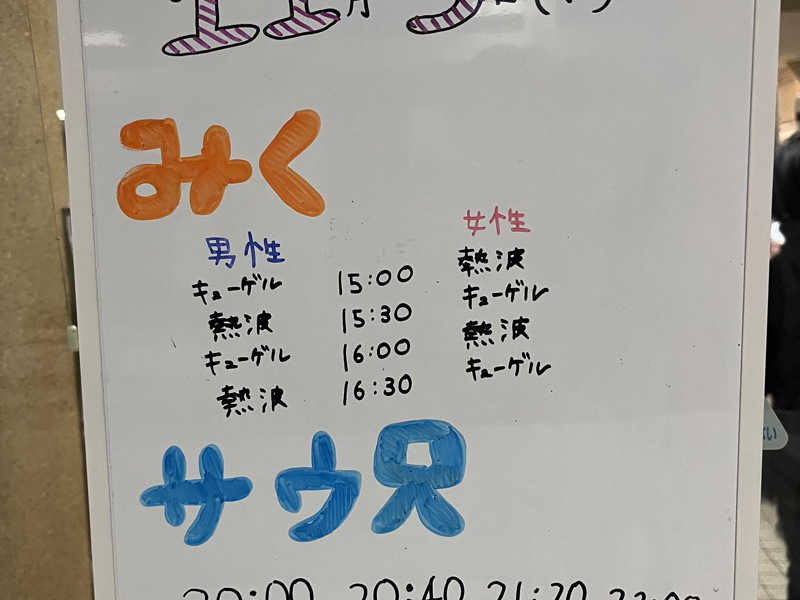 11月5日
みく
男性 女性
キューゲル 15:00 熱波
熱波 15:30 キューゲル
キューゲル 16:00 熱波
熱波 16:30 キューゲル
サウ兄
20:00 20:40 21:20 22:00